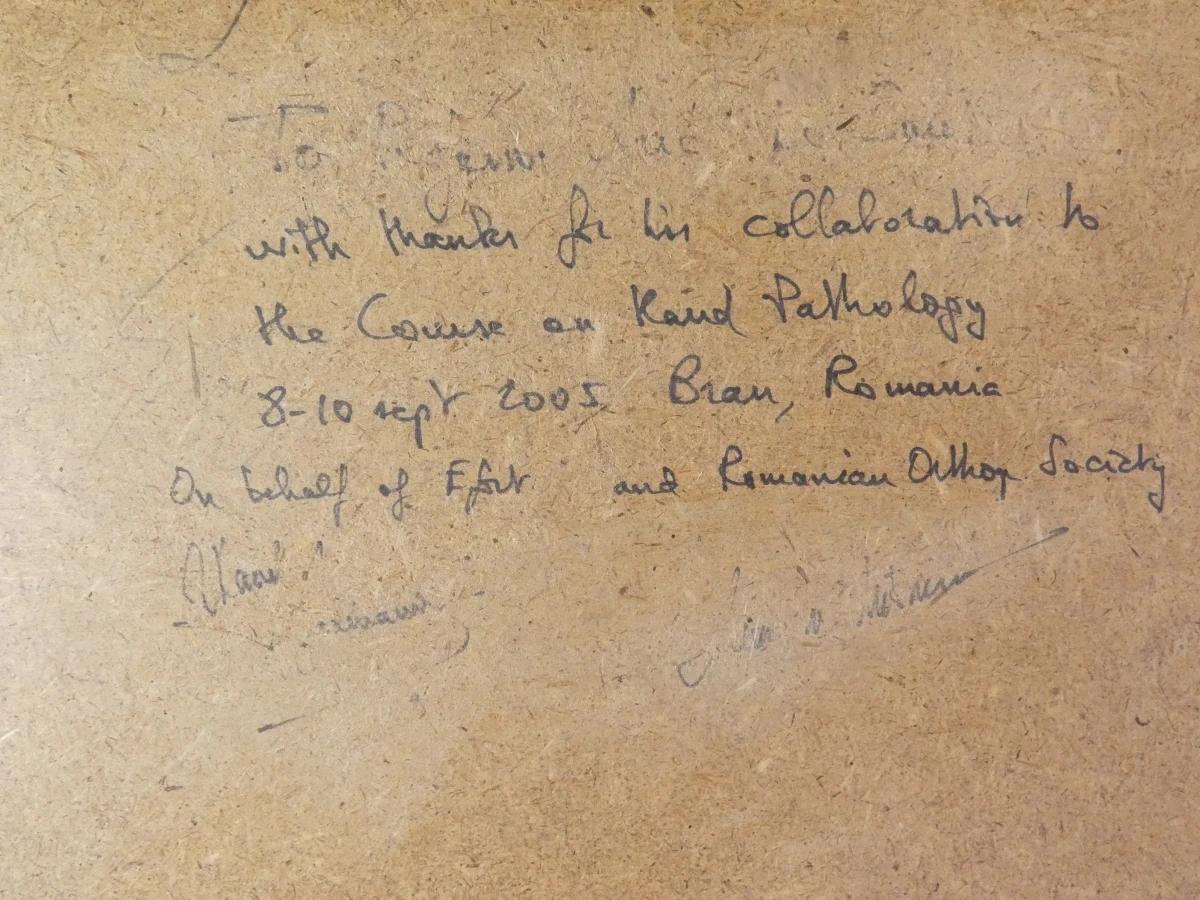 To
with thanks for his collaboration to
the Course on Hand Pathology
8-10 sept 2005 Bran, Romania
On behalf of Efort and Romanian Orthop Society